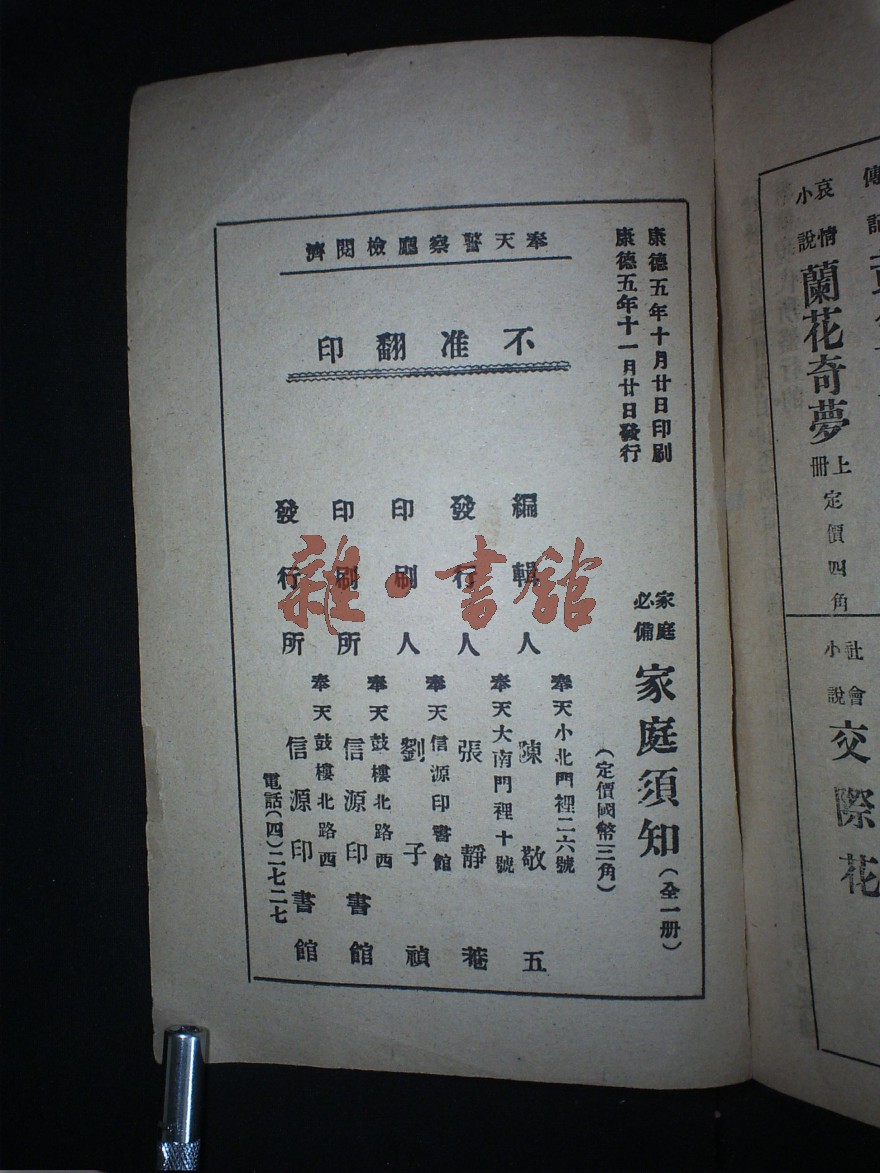 傳記
哀情小說
蘭花奇夢
上冊
定價四角
社會小說
交際花
康德五年十月廿日印刷
康德五年十一月廿日發行
奉天警察廳檢閱濟
不准翻印
家庭必備
家庭須知（全一册）
（定價國幣三角）
奉天小北門裡二六號
編輯人 陳敬五
奉天大南門裡十號
發行人 張靜菴
奉天信源印書館
印刷人 劉子禎
奉天鼓樓北路西
印刷所 信源印書館
奉天鼓樓北路西
發行所 信源印書館
電話(四)二七二七
雜·書館